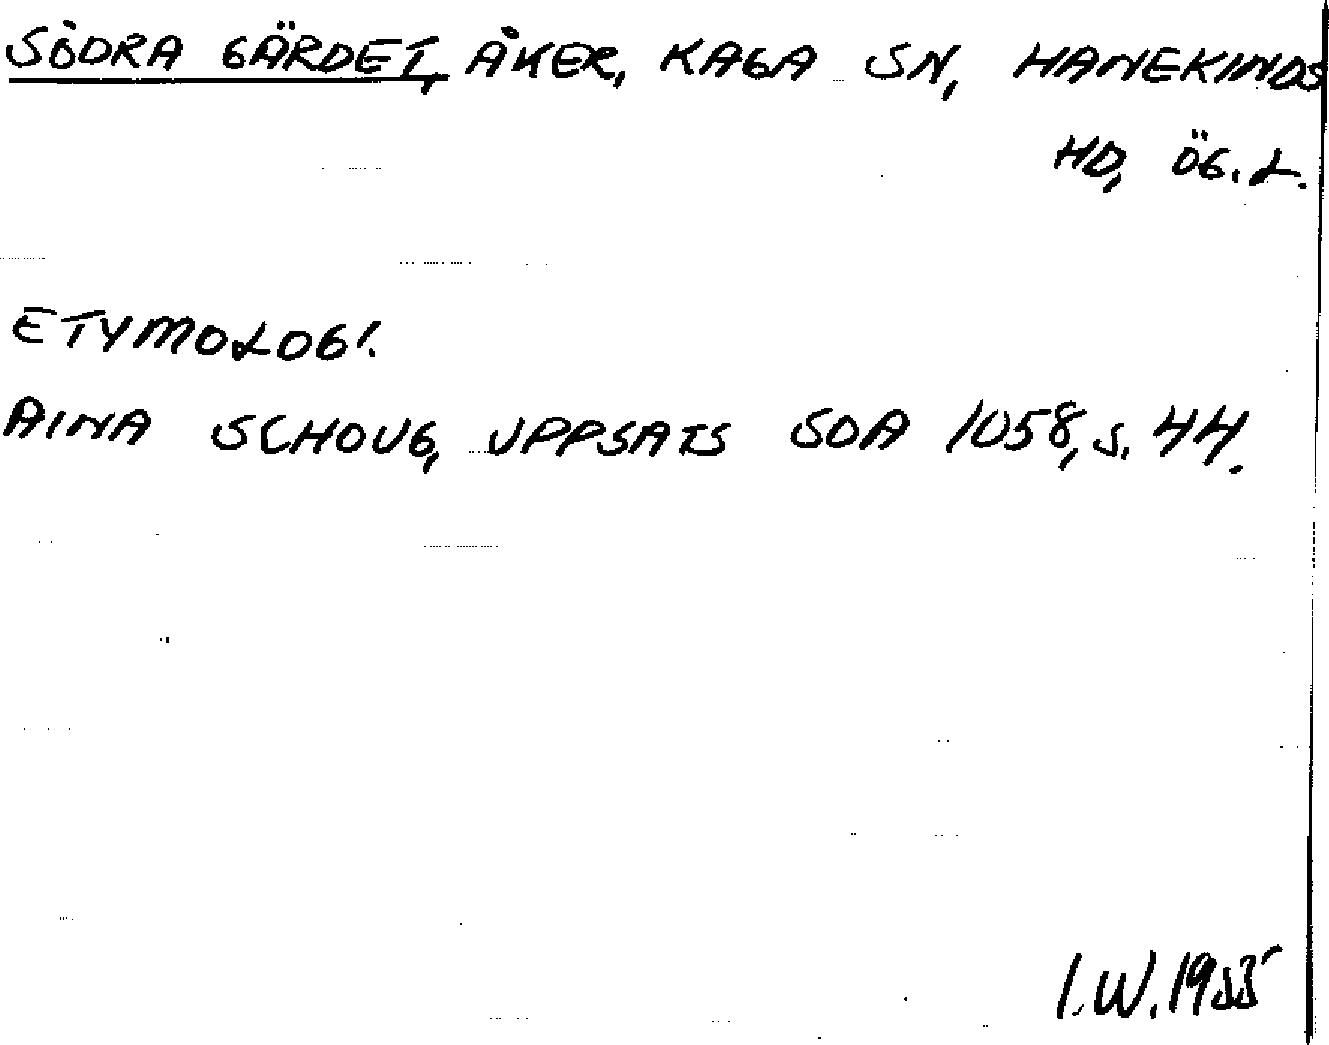 SÖDRA GÄRDET, ÅKER, KAGA SN, HANEKINDS
HD, ÖG.L.
ETYMOLOGI.
AINA SCHOUG, UPPSATS SOA 1058, S. 44.
I.W. 1955